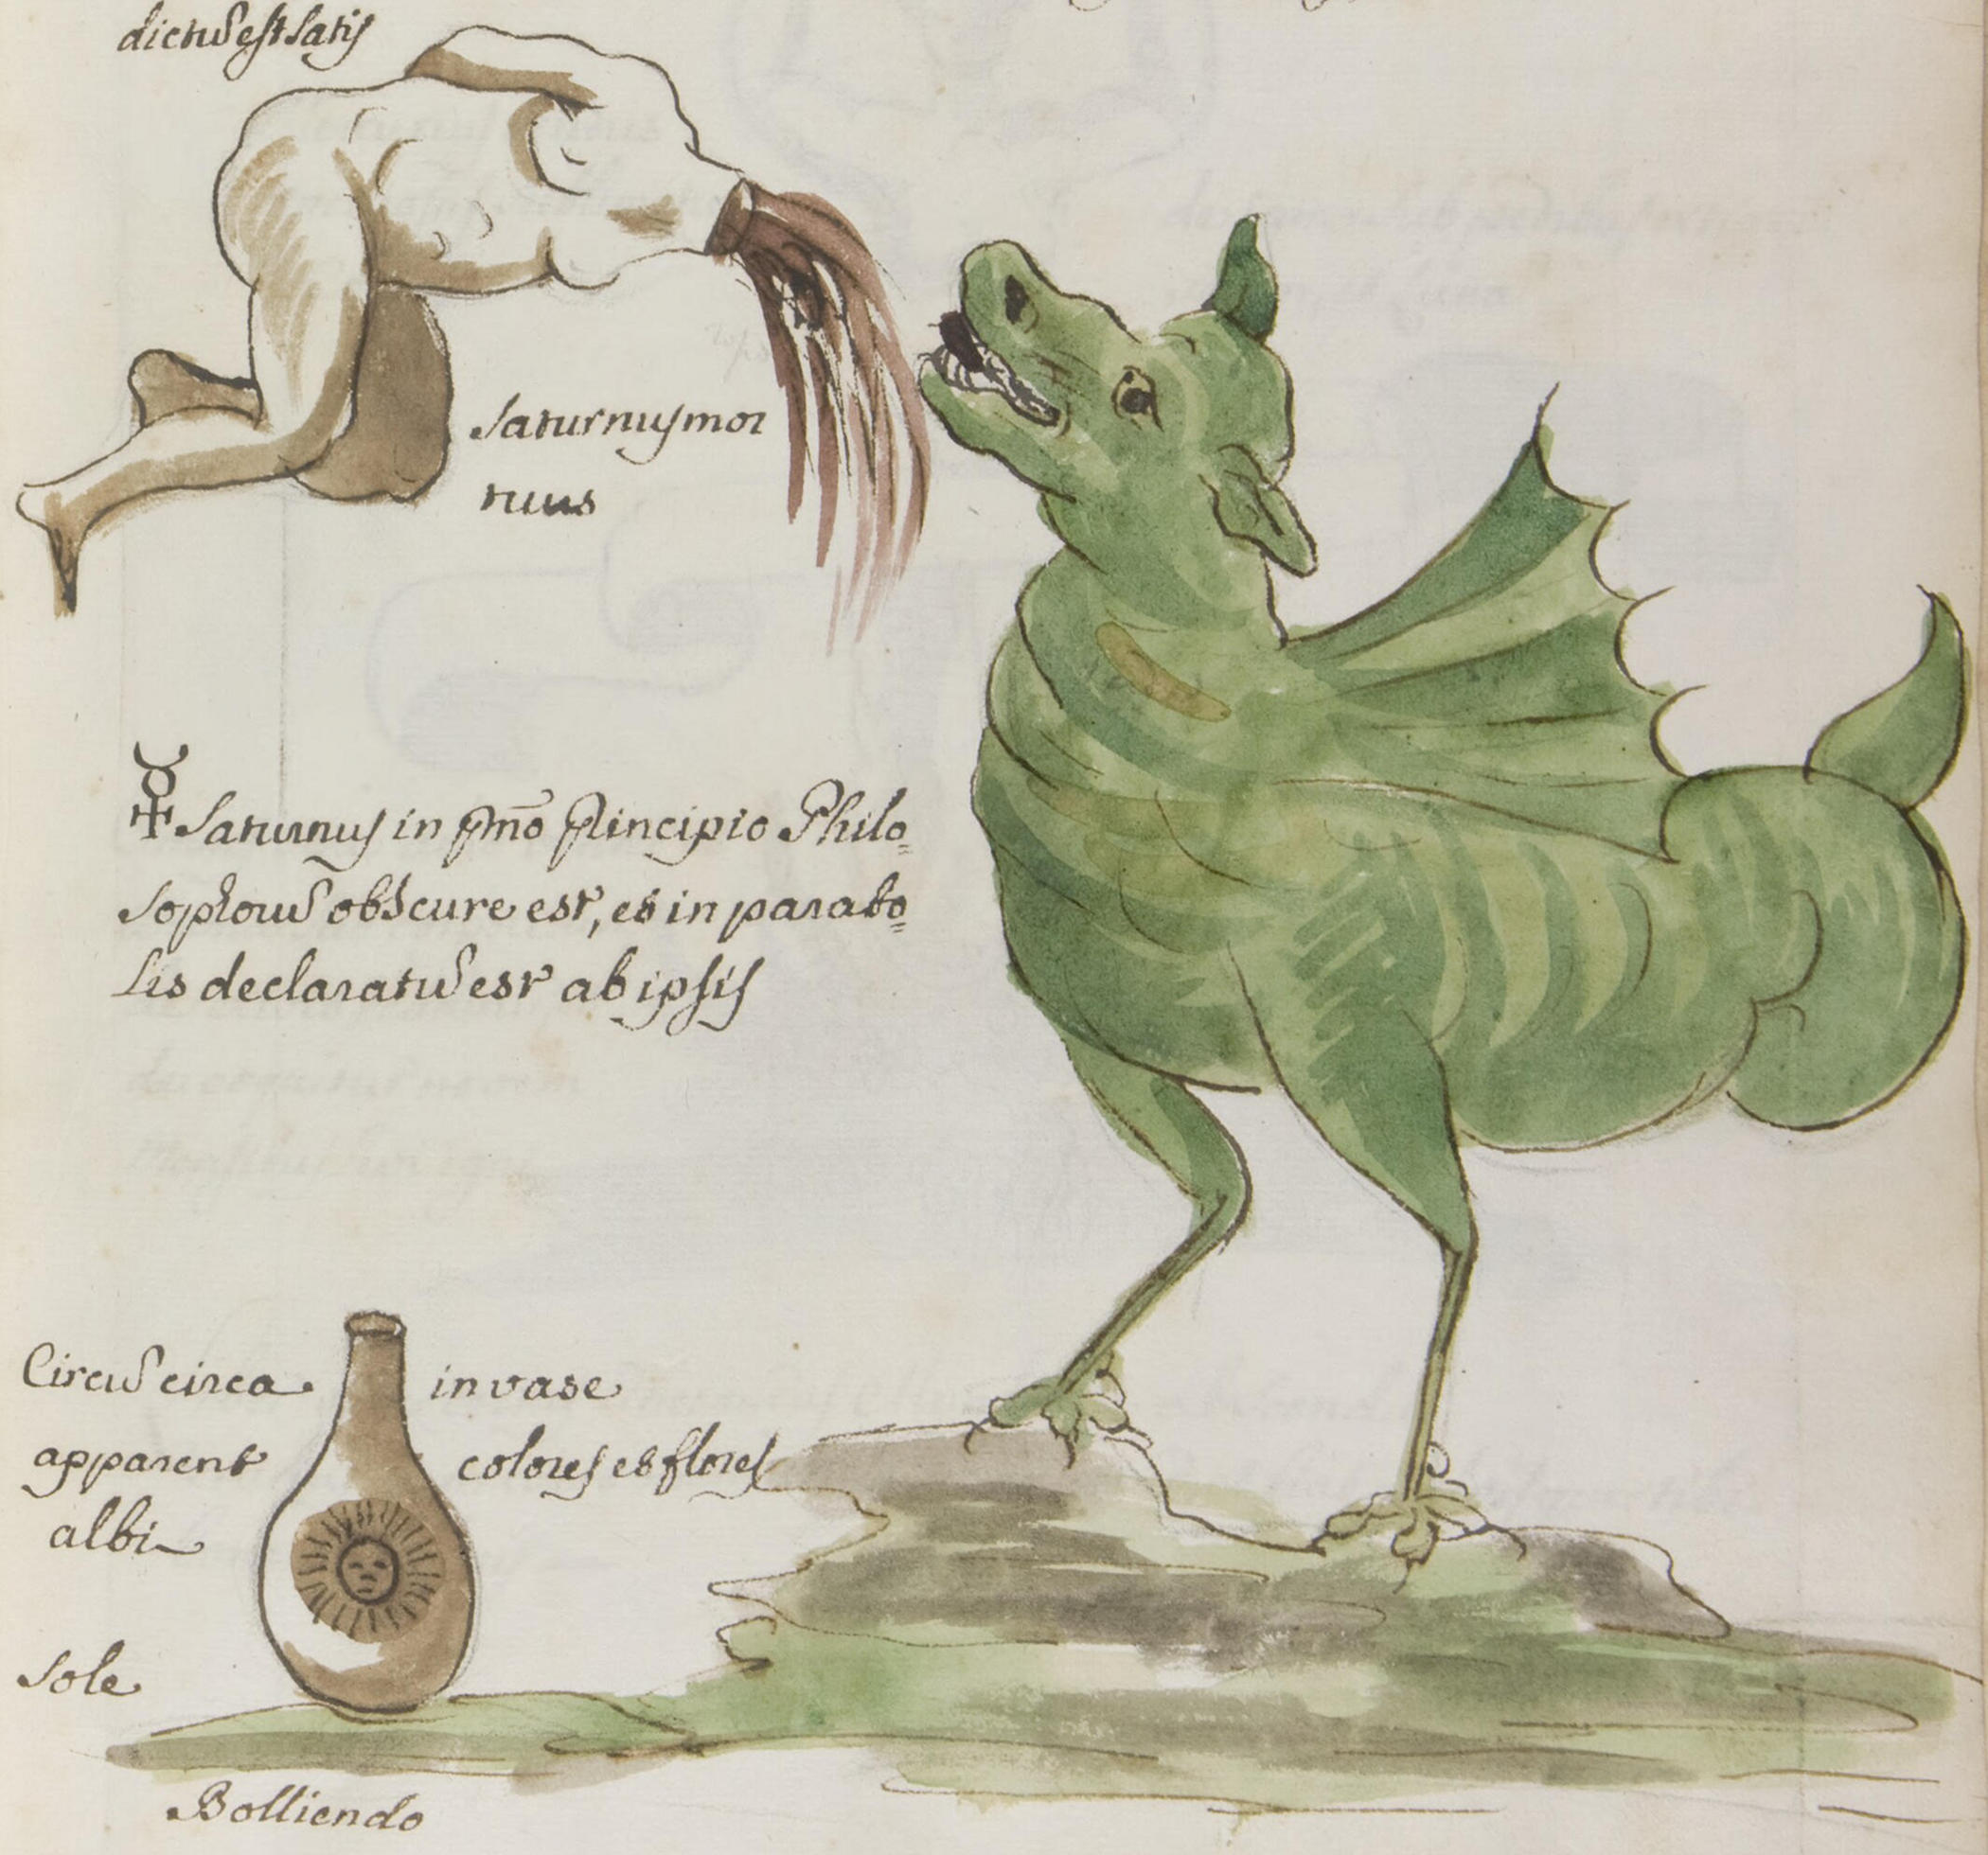 dictũ est satis
Saturnus mor
tuus
☿ Saturnus in pm̃o principio Philo=
sophorũ obscure est, et in parabo=
lis declaratũ est ab ipsis
Circũ circa in vase
apparent colores et flores
albi
sole
Bolliendo